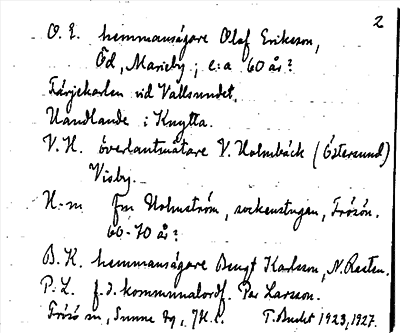 2
O. E. hemmansägare Olof Eriksson,
Öd, Marieby; c:a 60 år?
Färjekarlen vid Vallsundet.
Handlande i Knytta.
V. H. överlantmätare V. Holmbäck (Östersund)
Visby.
H-m fru Holmström, sockenstugan, Frösön.
60-70 år?
B. K. hemmansägare Bengt Karlsson, N. Rasten.
P. L. f.d. kommunalordf. Per Larsson.
Frösö sn, Sunne tg, Jtl. l. T. Bucht 1923, 1927.